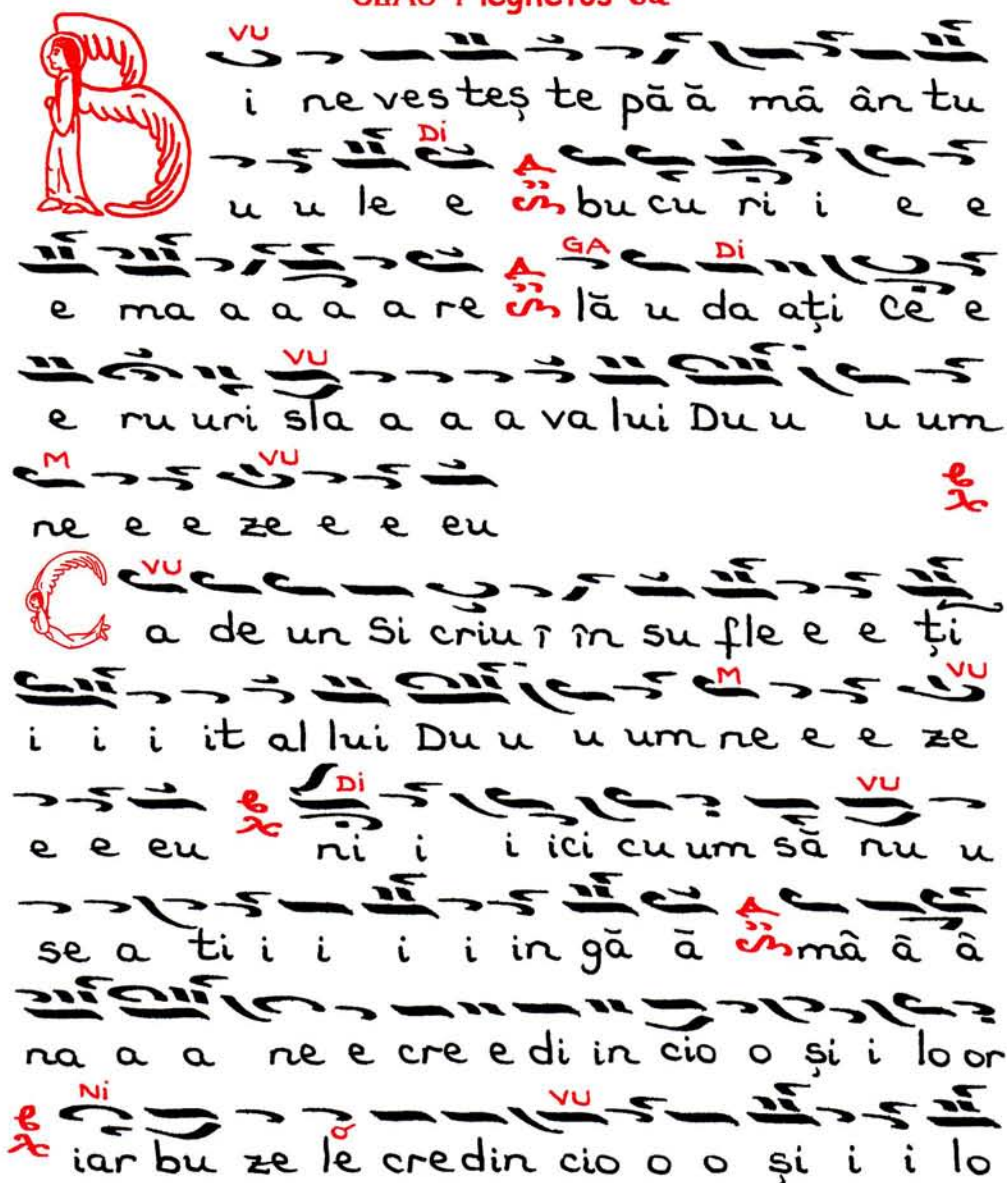 VU
B i ne ves teș te pă ă mâ ân tu
Di
u u le e bu cu ri i e e
GA Di
e ma a a a a re lă u da ați ce e
VU
e ru uri sla a a a va lui Du u u um
M VU
ne e e e ze e e eu
VU
C a de un Si criu î în su fle e e ți
M VU
i i i it al lui Du u u um ne e e ze
Di VU
e e eu ni i i ici cu um să nu u
se a ti i i i i in gă ă mâ â â
na a a ne e cre e di in cio o și i lo or
Ni VU
iar bu ze le cre din cio o o și i i lo